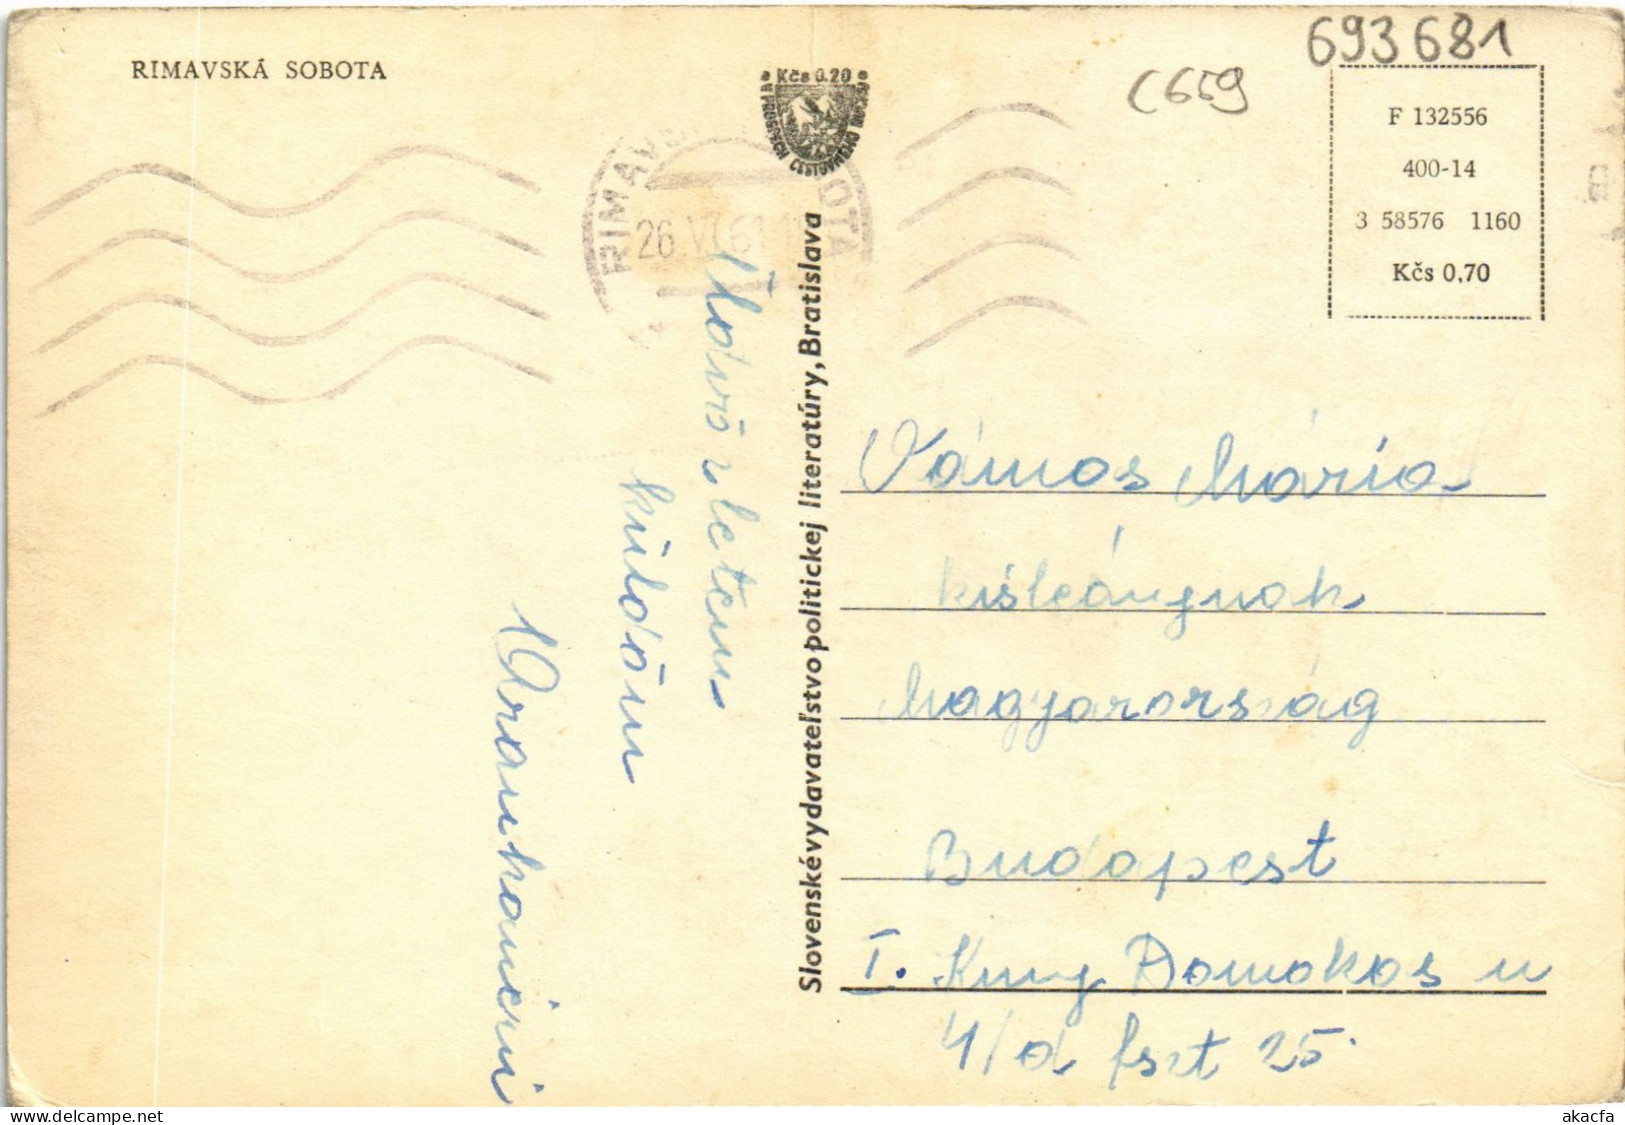 RIMAVSKÁ SOBOTA
693681
C659
Kčs 0.20
RIMAVS OTA
26.VI.61
F 132556
400-14
3 58576 1160
Kčs 0,70
Slovenské vydavateľstvo politickej literatúry, Bratislava
küldöm
Vámos Mária
kisleángnak
Magyarország
Budapest
I. Kuny Domokos u
4/a fszt 25.
akacfa